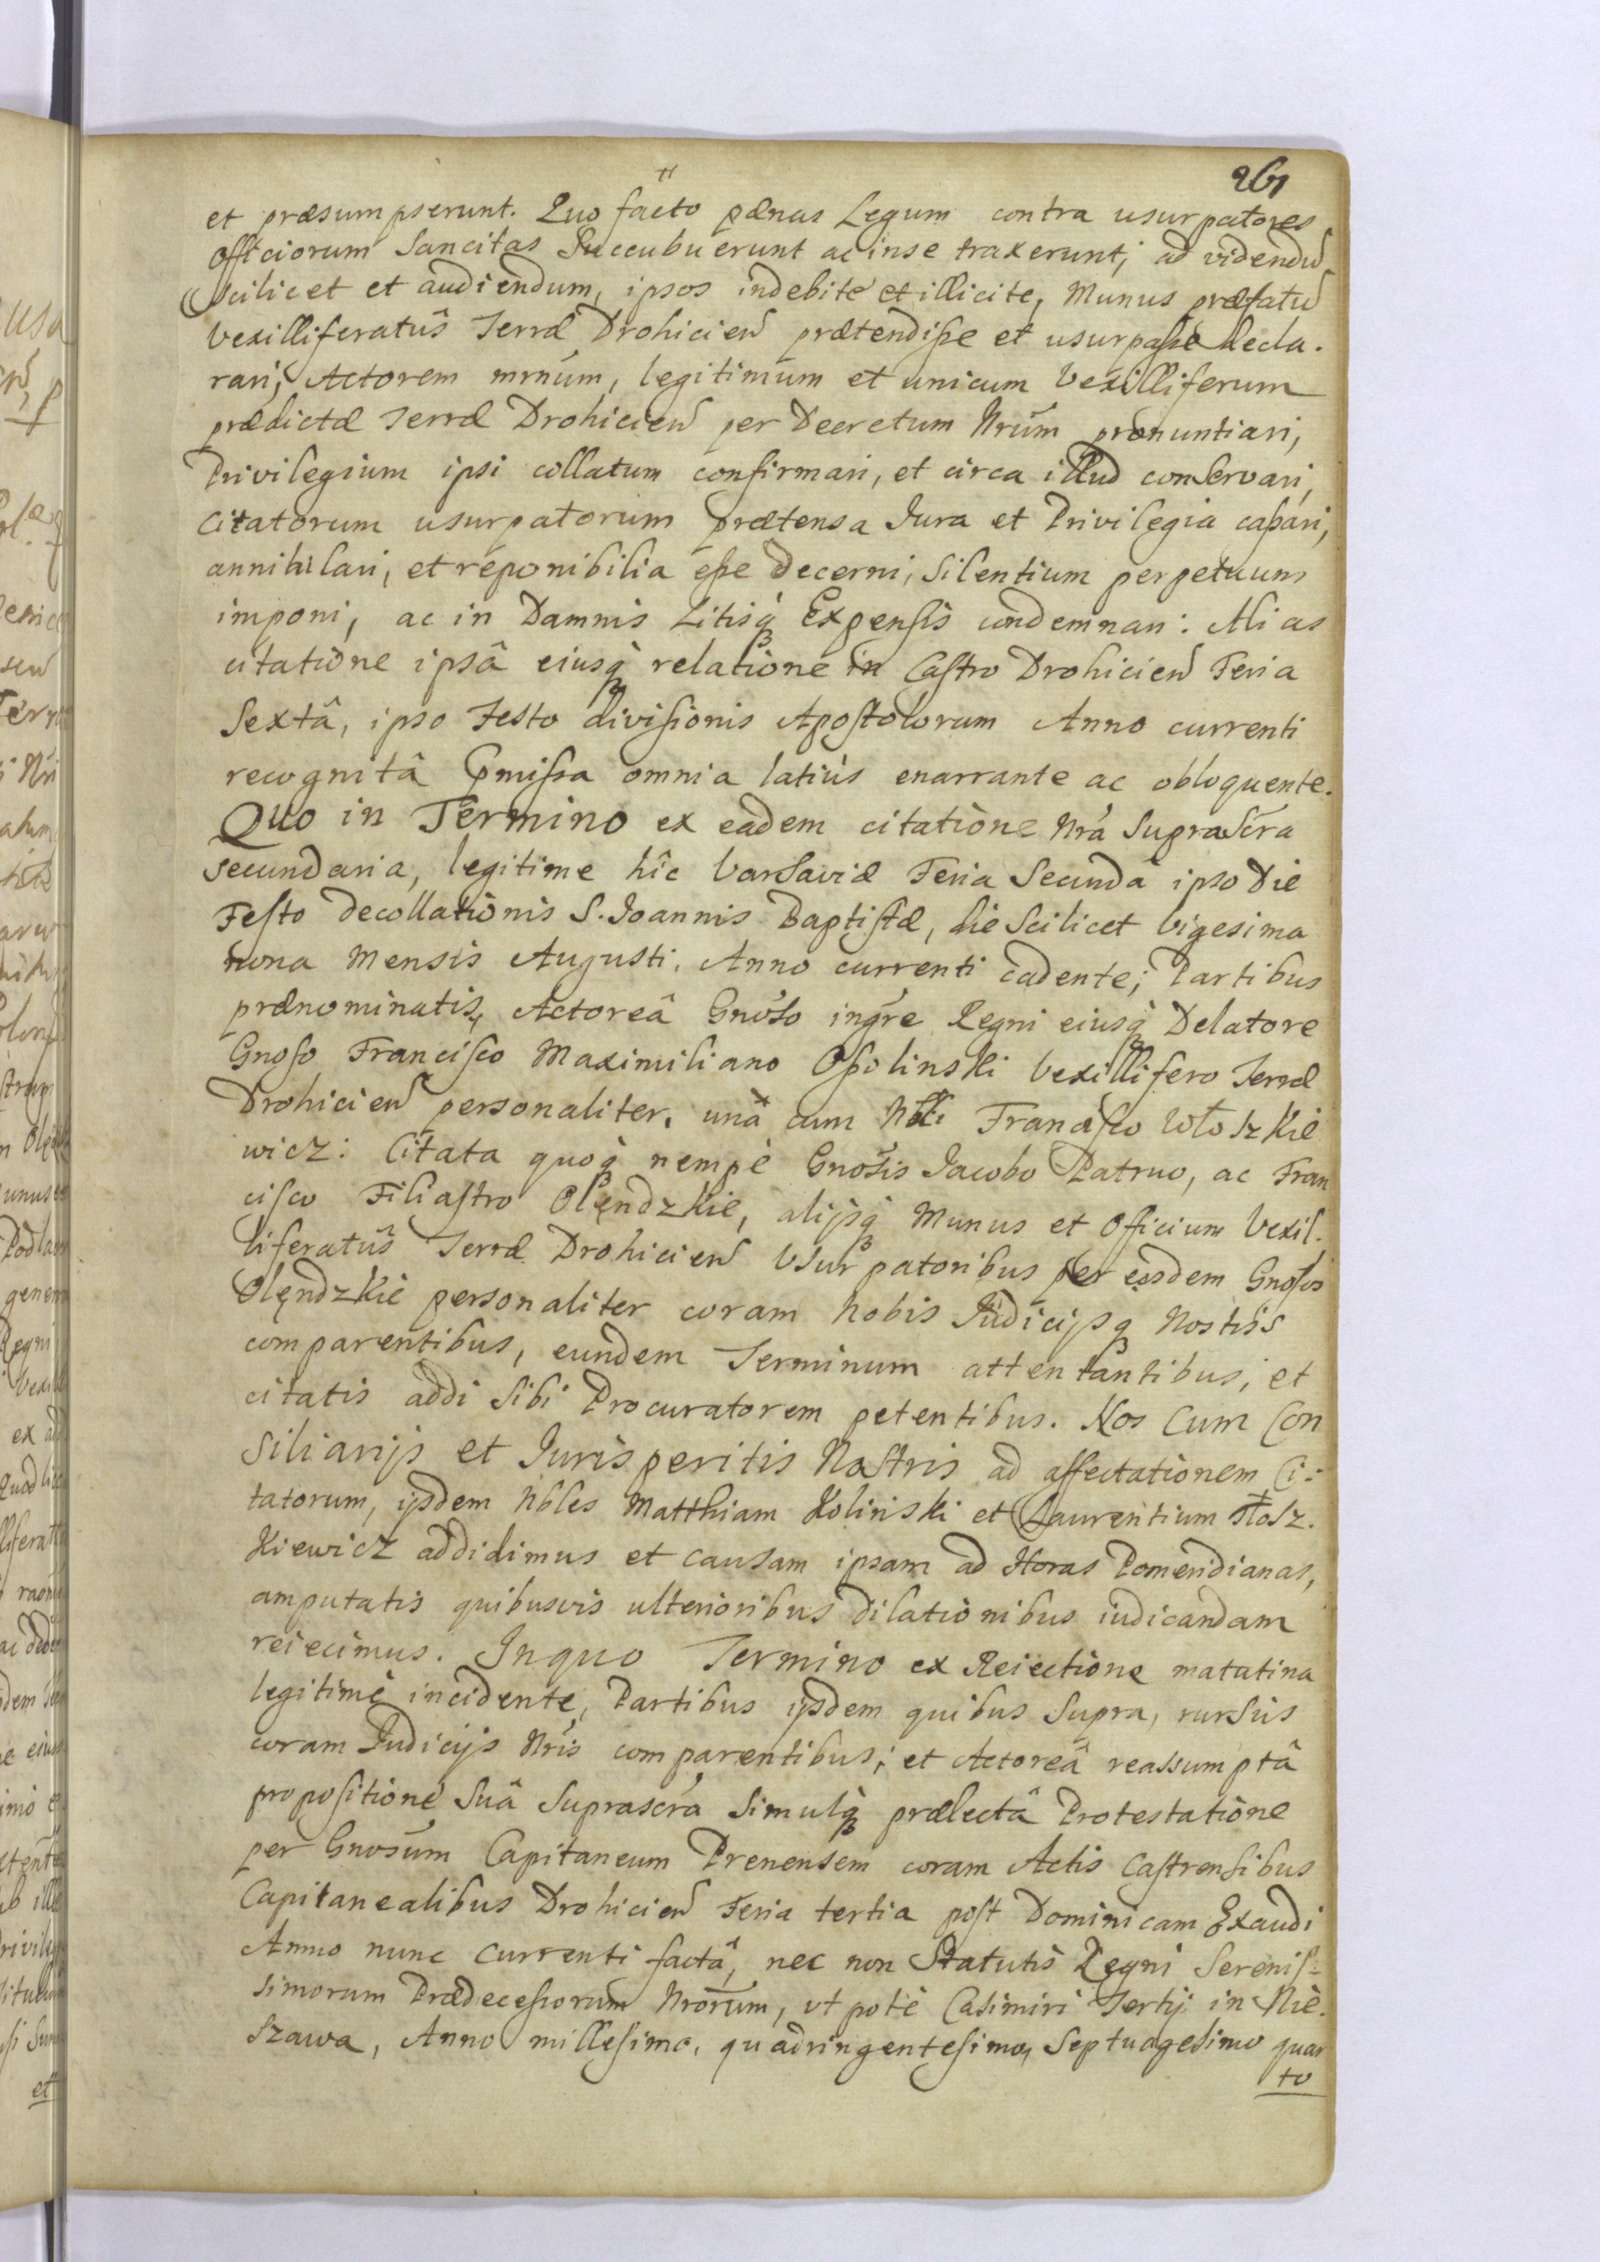 261
et præsumpserunt. Quo facto pænas Legum contra usurpatores
officiorum Sancitas Succubuerunt ac in se traxerunt; ad videndū
scilicet et audiendum, ipsos indebite et illicite, Munus præfatū
vexilliferatûs Terræ Drohicien̄ prætendiße et usurpaße decla-
rari; Actorem mrnūm, legitimum et unicum Vexilliferum
prædictæ Terræ Drohicien̄ per Decretum Nrūm pronuntiari,
Privilegium ipsi collatum confirmari, et circa illud conservari,
Citatorum usurpatorum prætensa Jura et Privilegia caßari,
annihilari, et reponibilia eße decerni, Silentium perpetuum
imponi, ac in Damnis Litisq́ Expensis condemnari: Alias
citatione ipsâ eiusq́ relatione in Castro Drohicien̄ Feria
Sextâ, ipso Festo divisionis Apostolorum Anno currenti
recognitâ p̄missa omnia latiùs enarrante ac obloquente.
Quo in Termino ex eadem citatiòne Nrâ Suprascrā
secundaria, legitime hîc Varsaviæ Feria Secundâ ipso Die
Festo decollationis S. Joannis Baptistæ, die Scilicet vigesima
nona Mensis Augusti, Anno currenti cadente; Partibus
prænominatis, Actoreâ Gnōso ingr̄e Regni eiusq́ Delatore
Gnoso Francisco Maximiliano Oßolinski Vexillifero Terræ
Drohicien̄ personaliter, unà cum Francisco Wołoszkie
wicz: Citata quoq́ nempè Gnōsis Jacobo Patruo, ac Fran
cisco Filiastro Olęndzkie, alijsq́ Munus et Officium Vexil-
liferatûs Terræ Drohicien̄ Usurpatoribus per eosdem Gnosos
Olęndzkie personaliter coram Nobis Judicijsq́ Nostris
comparentibus, eundem Terminum attentantibus, et
citatis addi Sibi Procuratorem petentibus. Nos Cum Con
Siliarijs et Jurisperitis Nostris ad affectationem Ci-
tatorum, ijsdem Nb̄les Matthiam Kolinski et Laurentium
Kiewicz addidimus et Causam ipsam ad Horas Pomeridianas,
amputatis quibusvis ulterioribus Dilationibus iudicandam
reiecimus. In quo Termino ex Reiectione matutina
legitimè incidente, Partibus ijsdem quibus Supra, rursùs
coram Judicijs Nrīs comparentibus; et Actoreâ reassumptâ
propositione Suâ Suprascrā Simulq́ prælectâ Protestatione
per Gnosūm Capitaneum Prenensem coram Actis Castrensibus
Capitanealibus Drohicien̄ Feria tertia post Dominicam Exaudi
Anno nunc currenti factâ, nec non Statutis Regni Serenis-
simorum Prædecessorum Nrorūm, ut potè Casimiri Tertij in Nie-
szawa, Anno millesimo, quadringentesimo, Septuagesimo quar
to